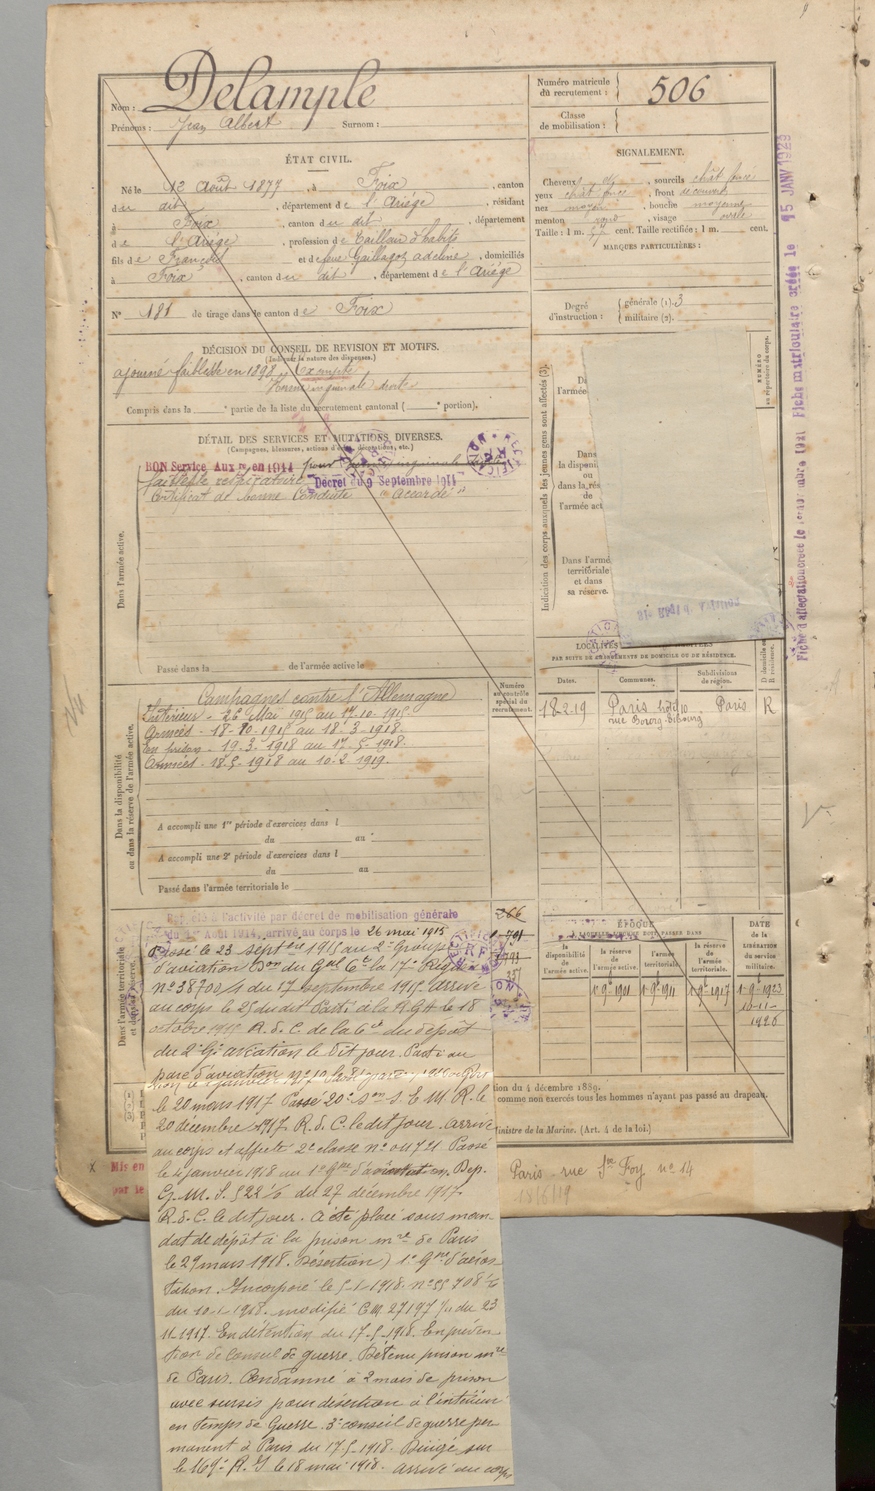 Nom : Delample
Prénoms : Jean Albert Surnom :
Numéro matricule du recrutement : 506
Classe de mobilisation :
ÉTAT CIVIL.
Né le 12 Août 1877, à Foix, canton
du dit, département de l'Ariège, résidant
à Foix, canton du dit, département
de l'Ariège, profession de Tailleur d'habits
fils de François et de feue Gaillagot adeline, domiciliés
à Foix, canton du dit, département de l'Ariège
N° 181 de tirage dans le canton de Foix
SIGNALEMENT.
Cheveux et sourcils chât foncé
yeux chât foncé, front découvert
nez moyen, bouche moyenne
menton rond, visage ovale
Taille : 1 m. 57 cent. Taille rectifiée : 1 m. cent.
MARQUES PARTICULIÈRES :
Degré d'instruction : générale (1). 3
militaire (2).
DÉCISION DU CONSEIL DE REVISION ET MOTIFS.
(Indiquer la nature des dispenses.)
ajourné faiblesse en 1898, Exempté
Hernie inguinale droite
Compris dans la e partie de la liste du recrutement cantonal ( e portion).
DÉTAIL DES SERVICES ET MUTATIONS DIVERSES.
(Campagnes, blessures, actions d'éclat, décorations, etc.)
BON Service Aux re en 1914 pour inguinale
faiblesse Décret du 9 Septembre 1914
Certificat de bonne Conduite "Accordé"
Dans l'armée active.
Passé dans la de l'armée active le
Indication des corps auxquels les jeunes gens sont affectés (3).
NUMÉRO au répertoire du corps.
Da
l'armée
Dans
la disponi
ou
dans la rés
de
l'armée act
Dans l'armé
territoriale
et dans
sa réserve.
Fiche matriculaire créée le 15 JANV 1923
Dans la disponibilité
ou dans la réserve de l'armée active.
Campagnes contre l'Allemagne
Intérieur - 26 Mai 1915 au 17-10-1915
Armées - 18-10-1915 au 18-3-1918.
en prison - 19-3-1918 au 17-5-1918.
Armées - 18-5-1918 au 10-2-1919.
A accompli une 1re période d'exercices dans l
du au
A accompli une 2e période d'exercices dans l
du au
Passé dans l'armée territoriale le
Numéro au contrôle spécial du recrutement.
LOCALITÉS
PAR SUITE DE CHANGEMENTS DE DOMICILE OU DE RÉSIDENCE.
Dates. Communes. Subdivisions de région. D domicile R résidence.
18-2-19 Paris Paris R
rue Bourg-Tibourg
Dans l'armée territoriale
et dans sa réserve.
Rappelé à l'activité par décret de mobilisation générale
du 1er Août 1914, arrivé au corps le 26 mai 1915
Passé le 23 septbre 1915 au 2e Groupe
d'aviation Don du Gal Ct la 17e Région
n° 38700/1 du 17 septembre 1915. arrivé
au corps le 25 du dit. Parti à la R G A le 18
octobre 1915. R. d. C. de la 6e du dépôt
du 2e Gr aviation le dit jour. Parti au
parc d'aviation
le 20 mars 1917 Passé 20e Son S. E. M. R. le
20 décembre 1917 R. d. C. le dit jour. arrivé
au corps et affecté 2e classe n° 01721 Passé
le 4 janvier 1918 au 1er Gpe d'aérostation. Dep.
G. M. S. 522 % du 27 décembre 1917
R. d. C. le dit jour. A été placé sous man-
dat de dépôt à la prison mre de Paris
le 29 mars 1918. (Désertion) 1er Gpe d'aéros-
tation. Incorporé le 5-1-1918. n° 55708 %
du 10-1-1918. modifié C.M. 27197 % du 23
11-1917. En détention du 17-5-1918. En préven-
tion de Conseil de guerre. Détenu prison mre
de Paris. Condamné à 2 mois de prison
avec sursis pour désertion à l'intérieur
en temps de Guerre. 3e conseil de guerre per
manent à Paris du 17-5-1918. Dirigé sur
le 169e R. I le 18 mai 1918. arrivé au corps
ÉPOQUE
la disponibilité de l'armée active. la réserve de l'armée active. l'armée territoriale. la réserve de l'armée territoriale.
DATE de la LIBÉRATION du service militaire.
1-9-1901 1-9-1911 1-9-1917 1-9-1923
10-11-
1926
tion du 4 décembre 1889.
comme non exercés tous les hommes n'ayant pas passé au drapeau.
Ministre de la Marine. (Art. 4 de la loi.)
Mis en
par le
Paris rue Ste Foy n° 14
18/6/19